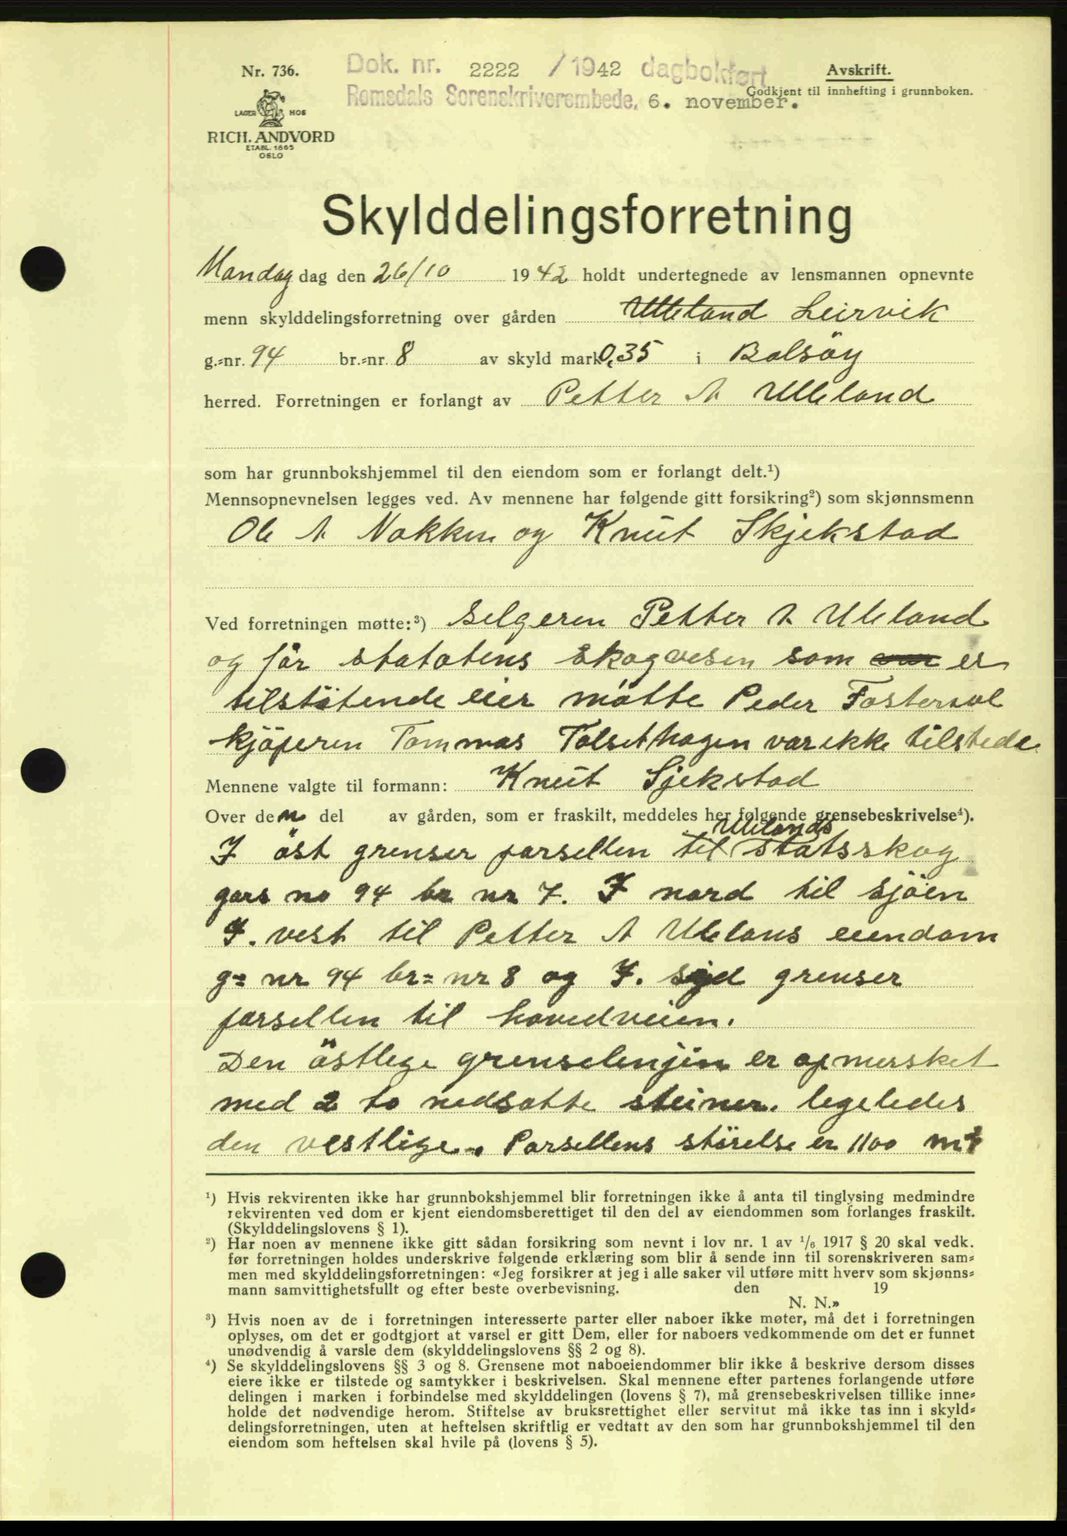 Nr. 736.
LAGER HOS
RICH. ANDVORD
ETABL. 1865
OSLO
Dok. nr. 2222 /1942 dagbokført
Romsdals Sorenskriverembede, 6. november.
Avskrift.
Godkjent til innhefting i grunnboken.
Skylddelingsforretning
Mandag dag den 26/10 1942 holdt undertegnede av lensmannen opnevnte
menn skylddelingsforretning over gården Ulleland Leirvik
g.=nr. 94 br.=nr. 8 av skyld mark 0,35 i Bolsöy
herred. Forretningen er forlangt av Petter A Ulleland
som har grunnbokshjemmel til den eiendom som er forlangt delt.¹)
Mennsopnevnelsen legges ved. Av mennene har følgende gitt forsikring²) som skjønnsmenn
Ole A Nakken og Knut Skjekstad
Ved forretningen møtte:³) Selgeren Petter A Uleland
og før statatens skogvesen som var er
tilstötende eier mötte Peder
kjöperen Tommas Tolsethagen var ikke tilstede
Mennene valgte til formann: Knut Sjekstad
Over den del av gården, som er fraskilt, meddeles her følgende grensebeskrivelse⁴).
Ulelands
I öst grenser parsellen til statsskog
gars no 94 br nr 7. I nord til sjöen
I. vest til Petter A Ulelans eiendom
g= nr 94 br= nr 8 og I. syd grenser
parsellen til hovedveien.
Den östlige grenselinjin er opmersket
med 2 to nedsatte steiner. legeledes
den vestlige. Parsellens störelse er 1100 m²
¹) Hvis rekvirenten ikke har grunnbokshjemmel blir forretningen ikke å anta til tinglysing medmindre
rekvirenten ved dom er kjent eiendomsberettiget til den del av eiendommen som forlanges fraskilt.
(Skylddelingslovens § 1).
²) Har noen av mennene ikke gitt sådan forsikring som nevnt i lov nr. 1 av ¹/₆ 1917 § 20 skal vedk.
før forretningen holdes underskrive følgende erklæring som blir å sende inn til sorenskriveren sam=
men med skylddelingsforretningen: «Jeg forsikrer at jeg i alle saker vil utføre mitt hverv som skjønns=
mann samvittighetsfullt og efter beste overbevisning. den 19
N. N.»
³) Hvis noen av de i forretningen interesserte parter eller naboer ikke møter, må det i forretningen
oplyses, om det er godtgjort at varsel er gitt Dem, eller for naboers vedkommende om det er funnet
unødvendig å varsle dem (skylddelingslovens §§ 2 og 8).
⁴) Se skylddelingslovens §§ 3 og 8. Grensene mot naboeiendommer blir ikke å beskrive dersom disses
eiere ikke er tilstede og samtykker i beskrivelsen. Skal mennene efter partenes forlangende utføre
delingen i marken i forbindelse med skylddelingen (lovens § 7), må grensebeskrivelsen tillike inne=
holde det nødvendige herom. Stiftelse av bruksrettighet eller servitut må ikke tas inn i skyld=
delingsforretningen, uten at heftelsen skriftlig er vedtatt av den som har grunnbokshjemmel til den
eiendom som heftelsen skal hvile på (lovens § 5).